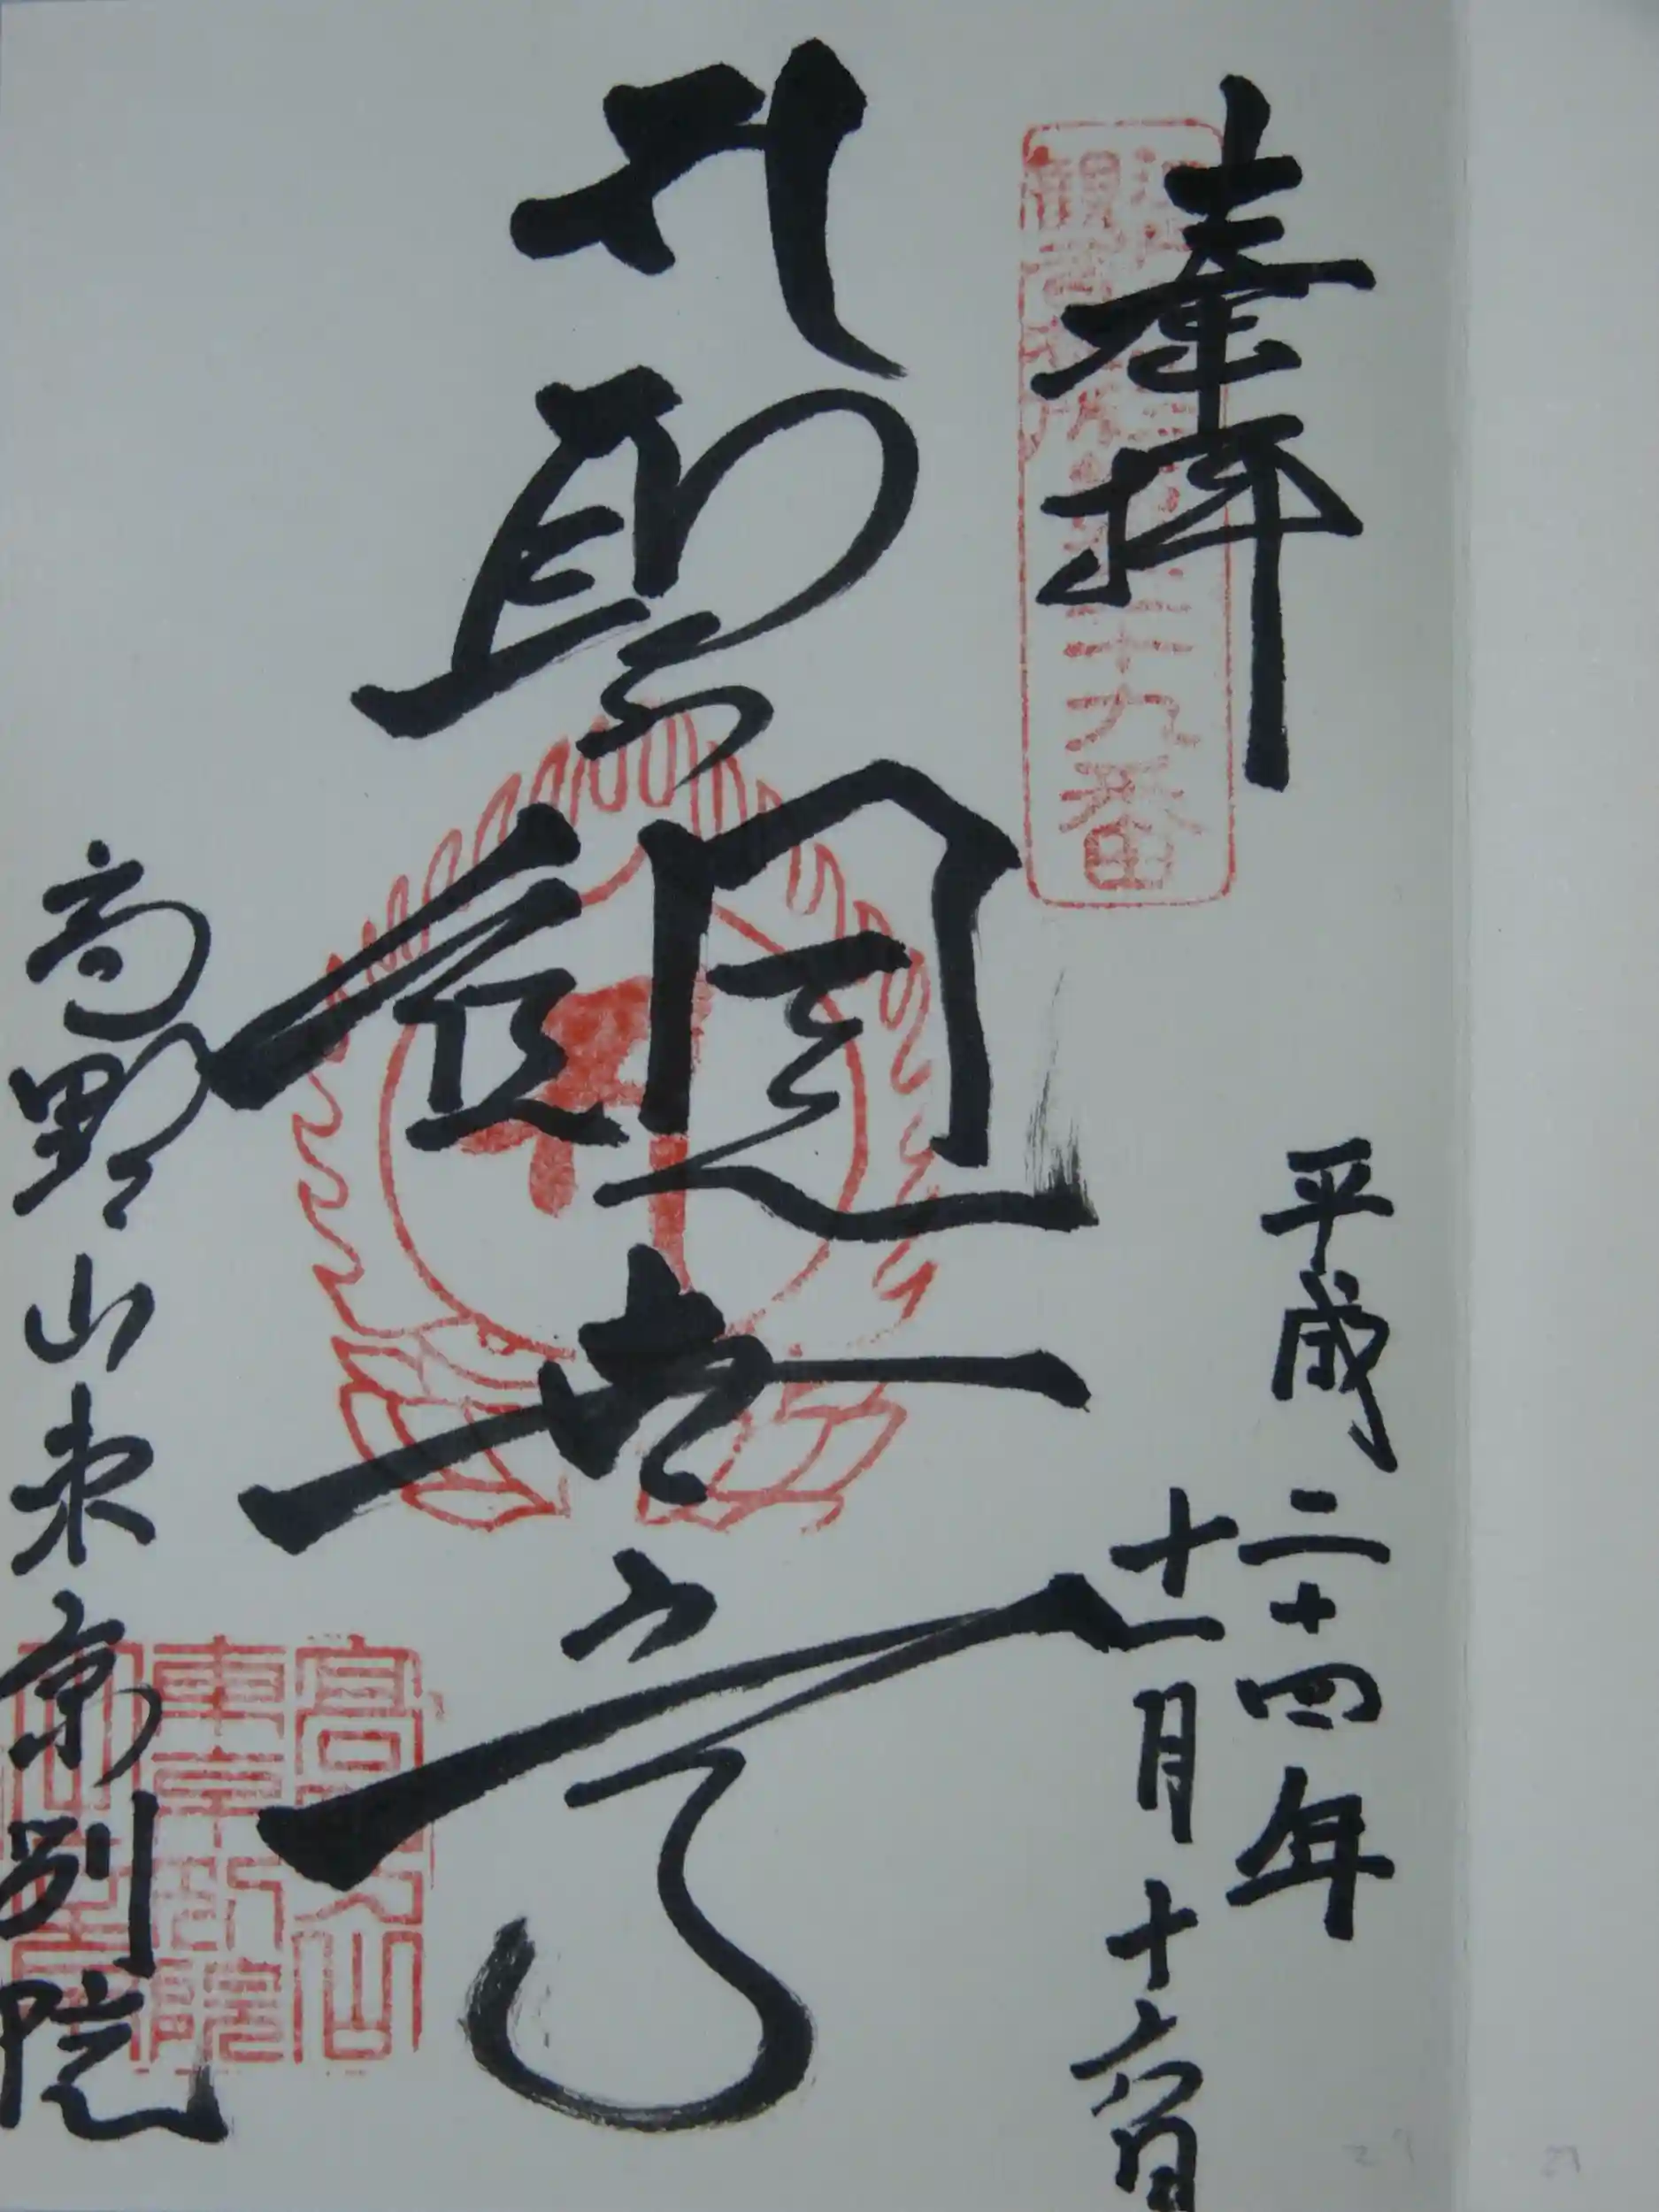 奉拝
観音札所
二十九番
平成二十四年
十一月十六日
聖觀世音
高野山東京別院
高野山
東京別院